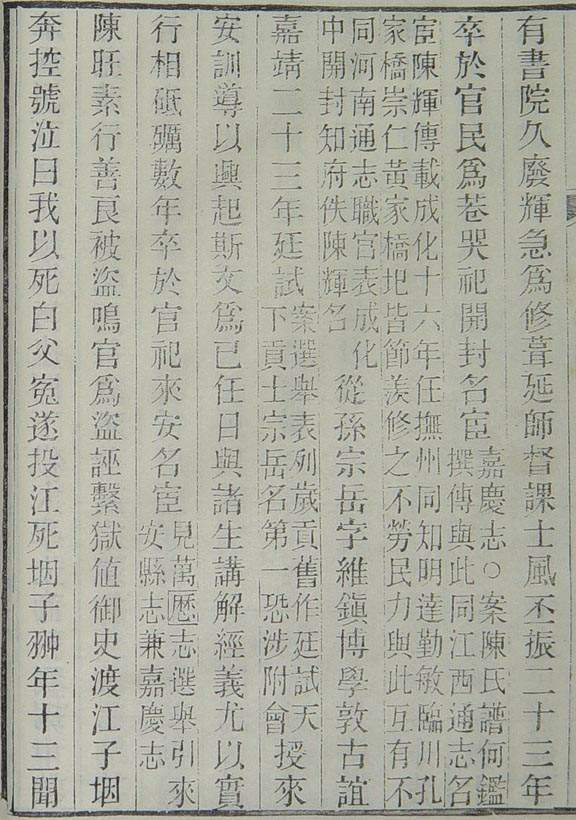 有書院久廢輝急爲修葺延師督課士風丕振二十三年
卒於官民爲巷哭祀開封名宦嘉慶志○案陳氏譜何鑑撰傳與此同江西通志名
宦陳輝傳載成化十六年任撫州同知明達勤敏臨川孔家橋崇仁黃家橋圯皆節羨修之不勞民力與此互有不
同河南通志職官表成化中開封知府佚陳輝名從孫宗岳字維鎭博學敦古誼
嘉靖二十三年廷試案選舉表列歲貢舊作廷試天下貢士宗岳名第一恐涉附會授來
安訓導以興起斯文爲已任日與諸生講解經義尤以實
行相砥礪數年卒於官祀來安名宦見萬歷志選舉引來安縣志兼嘉慶志
陳旺素行善良被盜鳴官爲盜誣繫獄値御史渡江子堌
奔控號泣曰我以死白父寃遂投江死堌子翀年十三聞